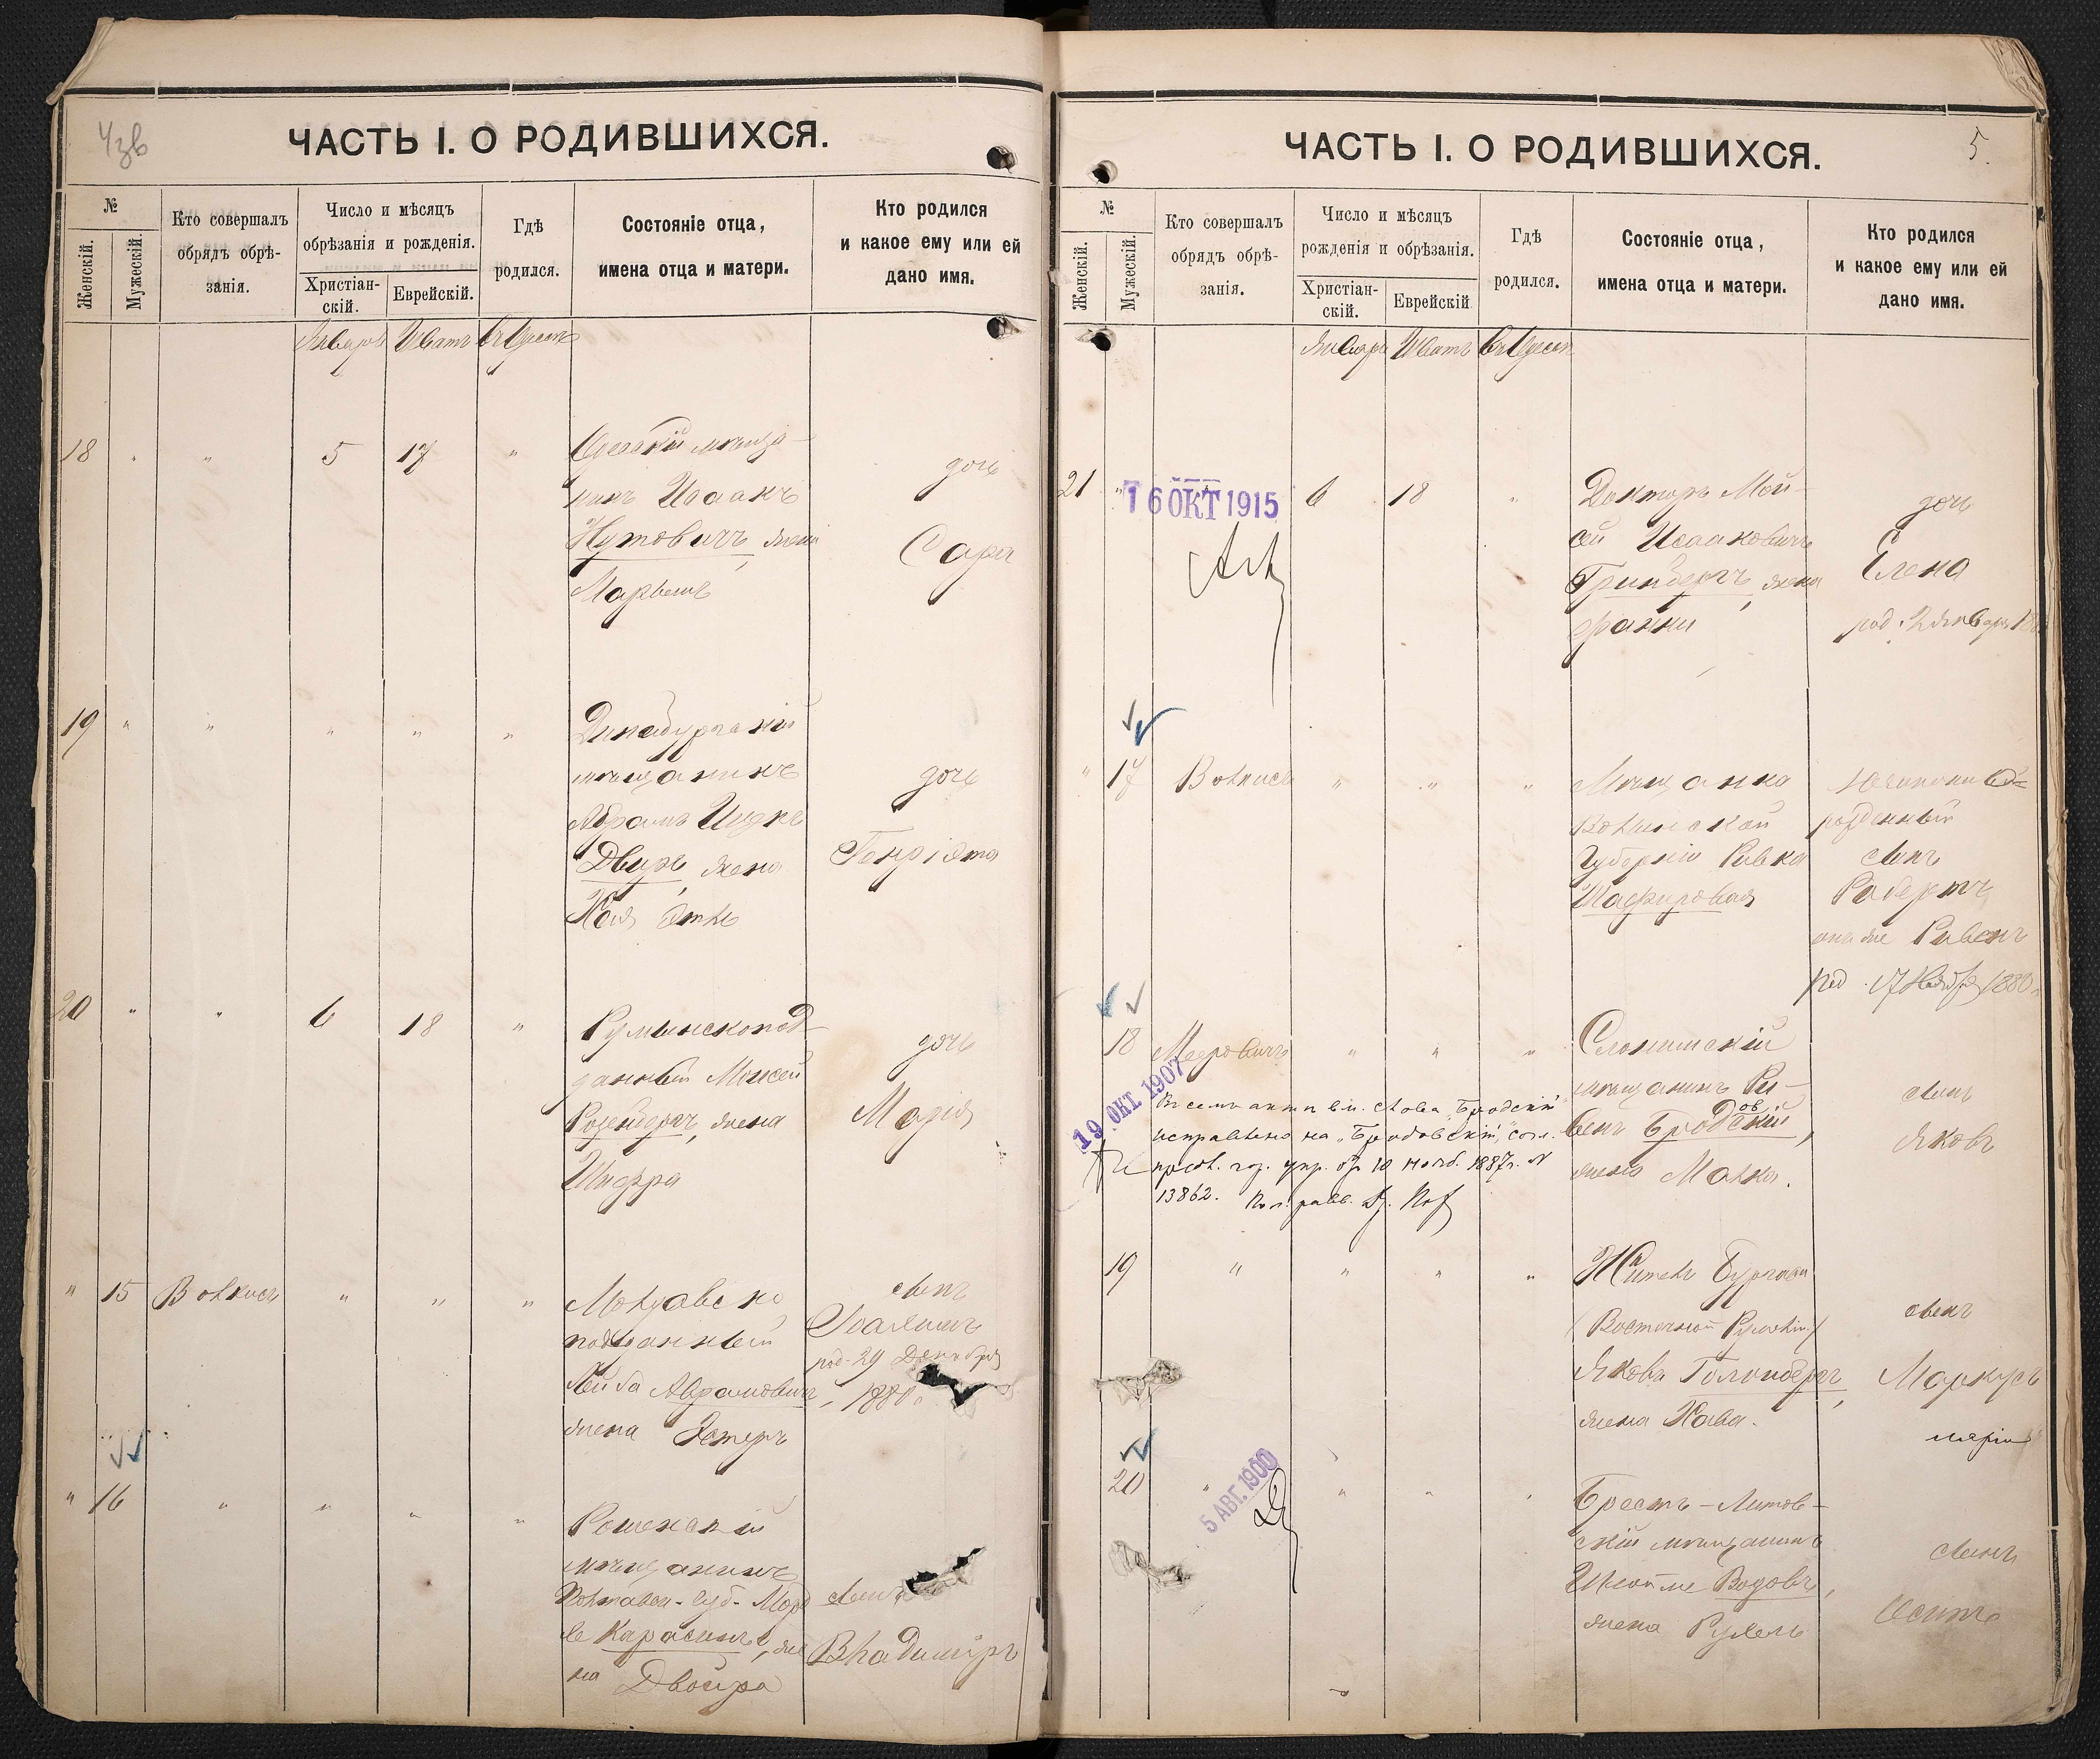 ЧАСТЬ I. О РОДИВШИХСЯ.
№
Женскій.
Мужескій.
Кто совершалъ
обрядъ обрѣ-
занія.
Число и мѣсяцъ
обрѣзанія и рожденія.
Христіан-
скій.
Еврейскій.
Гдѣ
родился.
Состояніе отца,
имена отца и матери.
Кто родился
и какое ему или ей
дано имя.
Январь Шватъ въ Одессѣ
18 " " 5 17 "
Одесскій мѣща-
нинъ Исаакъ
Нутовичъ, жена
дочь
Сара
19 " " " " "
Динабургскій
мѣщанинъ
Абрамъ Ицекъ
Двиръ, жена
Хая Этль
дочь
Генріэта
20 " " 6 18 "
Румынскопод-
данный Моисей
Розенбергъ, жена
Шифра
дочь
Марія
" 15 Волкисъ " " "
Молдавско
подданный
Лейба Абрамовичъ,
жена Эстеръ
сынъ
Іоахимъ
род. 29 Декабря
1880.
" 16 " " " "
Роменскій
мѣщанинъ
Полтавск. губ. Морд
ко Карасикъ, же
на Двойра
сынъ
Владиміръ
ЧАСТЬ I. О РОДИВШИХСЯ.
5.
№
Женскій.
Мужескій.
Кто совершалъ
обрядъ обрѣ-
занія.
Число и мѣсяцъ
рожденія и обрѣзанія.
Христіан-
скій.
Еврейскій
Гдѣ
родился.
Состояніе отца,
имена отца и матери.
Кто родился
и какое ему или ей
дано имя.
Январь Шватъ въ Одессѣ
21 " 6 18 "
16 ОКТ 1915
Докторъ Мои-
сей Исааковичъ
Гринбергъ, жена
Фанни
дочь
Елена
род. 2 Января
" 17 Волкисъ " " "
Мѣщанка
Волынской
Губерніи Ривка
Шафировая
рожденный
сынъ
Робертъ
онъ же Рувенъ
род. 17 Ноября 1880
18 Мееровичъ " " "
Слонимскій
мѣщанинъ Ру-
венъ Бродскій,
ов
жена Малка.
сынъ
Яковъ
19 ОКТ. 1907
Въ семъ актѣ вм. слова „Бродскій"
исправлено на „Бродовскій", согл.
предл. гор. упр. отъ 10 нояб. 1887 г. №
13862.
19 " " " "
Житель Бургаса
(Восточной Румеліи)
Яковъ Голдбергъ,
жена Хава.
сынъ
Маркусъ
20 " " " "
5 АВГ. 1900
Брестъ-Литов-
скій мѣщанинъ
Водовъ,
жена Рухель
сынъ
Осипъ